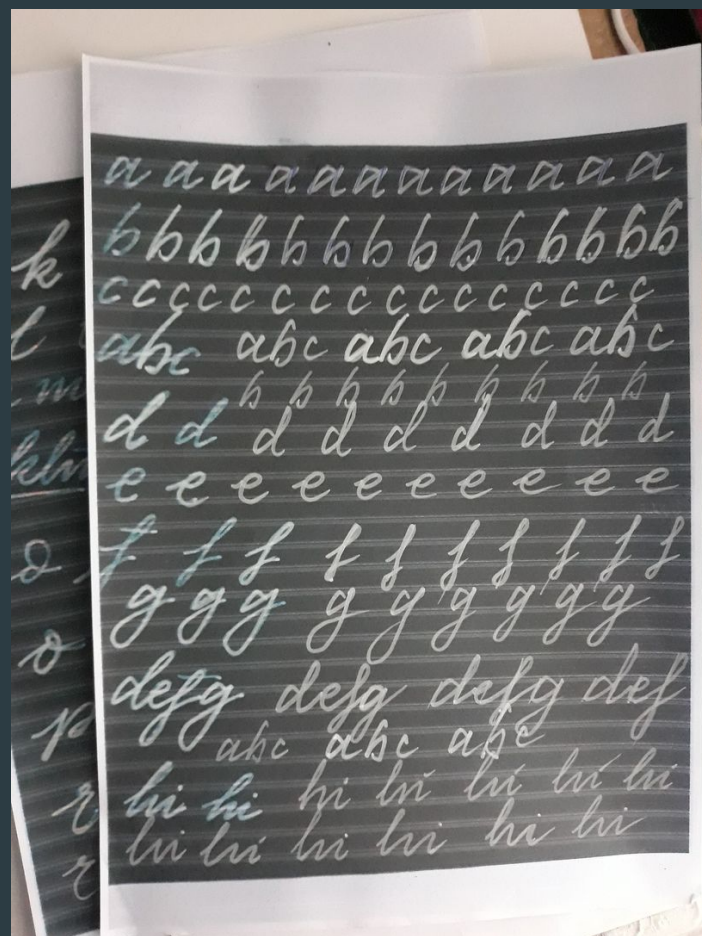 a a a a a a a a a a a a a
b b b b b b b b b b b b b b
c c c c c c c c c c c c c c c c c
abc abc abc abc abc
b b b b b b b b b
d d d d d d d d d
e e e e e e e e e e
f f f f f f f f f f
g g g g g g g g g
defg defg defg def
abc abc abc
hi hi hi hi hi hi hi
hi hi hi hi hi hi
k
l
m
klm
o
o
p
r
r